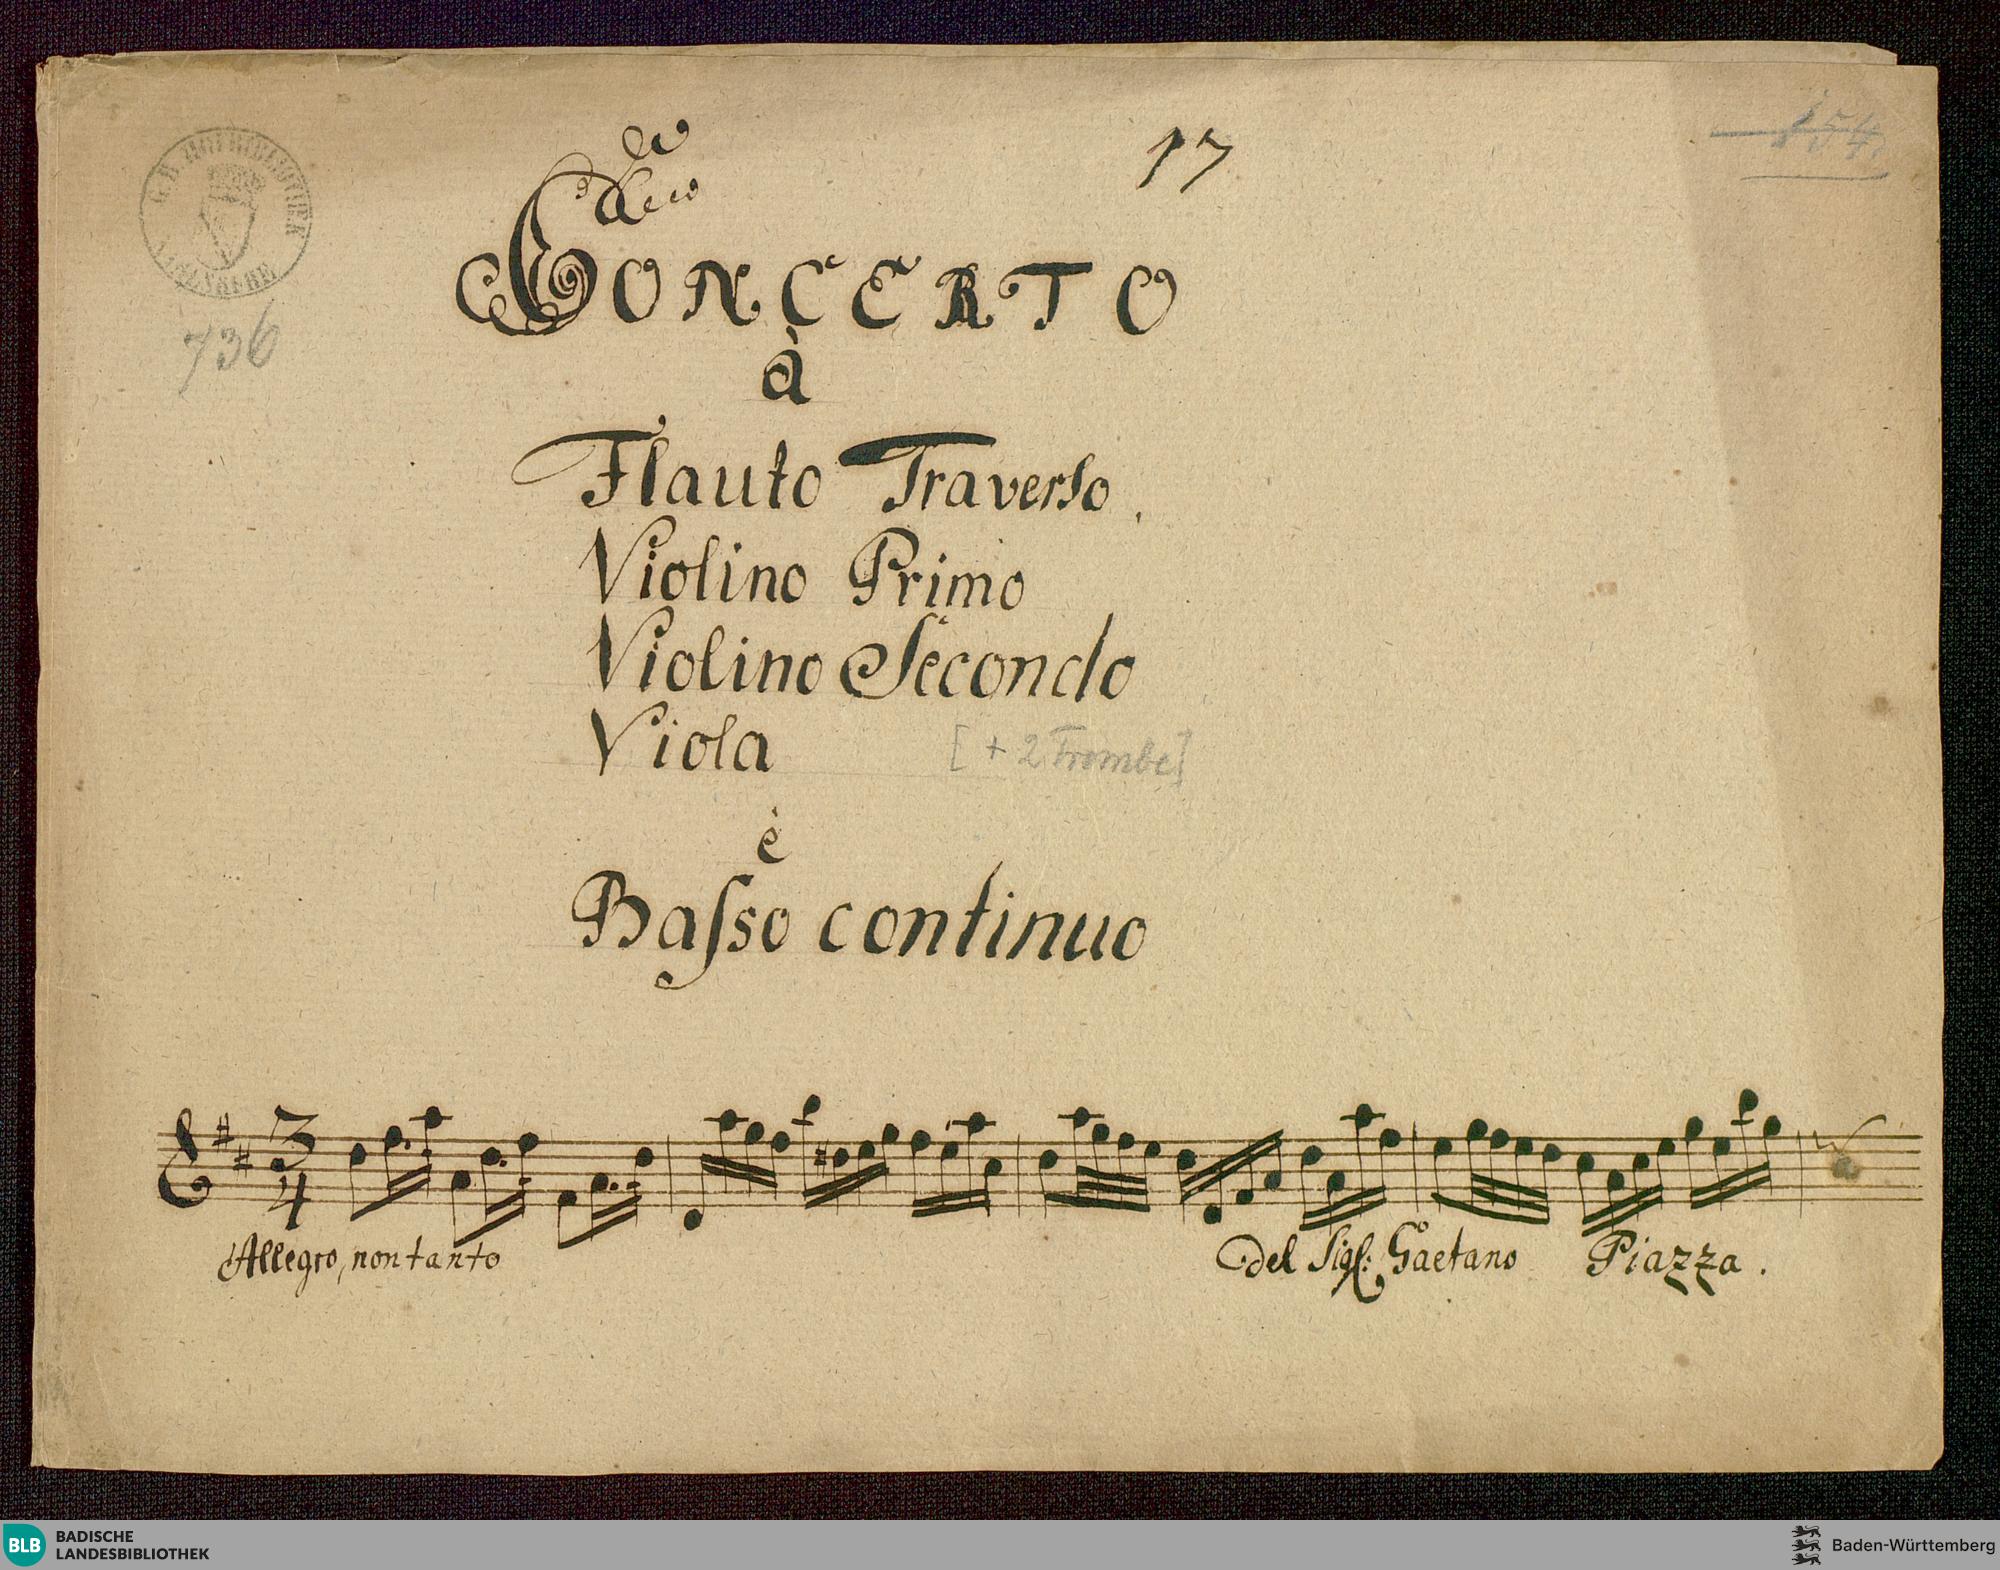 17
154.
G. B. HOFBIBLIOTHEK
KARLSRUHE
736
CONCERTO
à
Flauto Traverso.
Violino Primo
Violino Secondo
Viola [+ 2 Trombe]
è
Basso continuo
3
4
Allegro, non tanto
Del Sigl: Gaetano Piazza.
BLB BADISCHE
LANDESBIBLIOTHEK
Baden-Württemberg